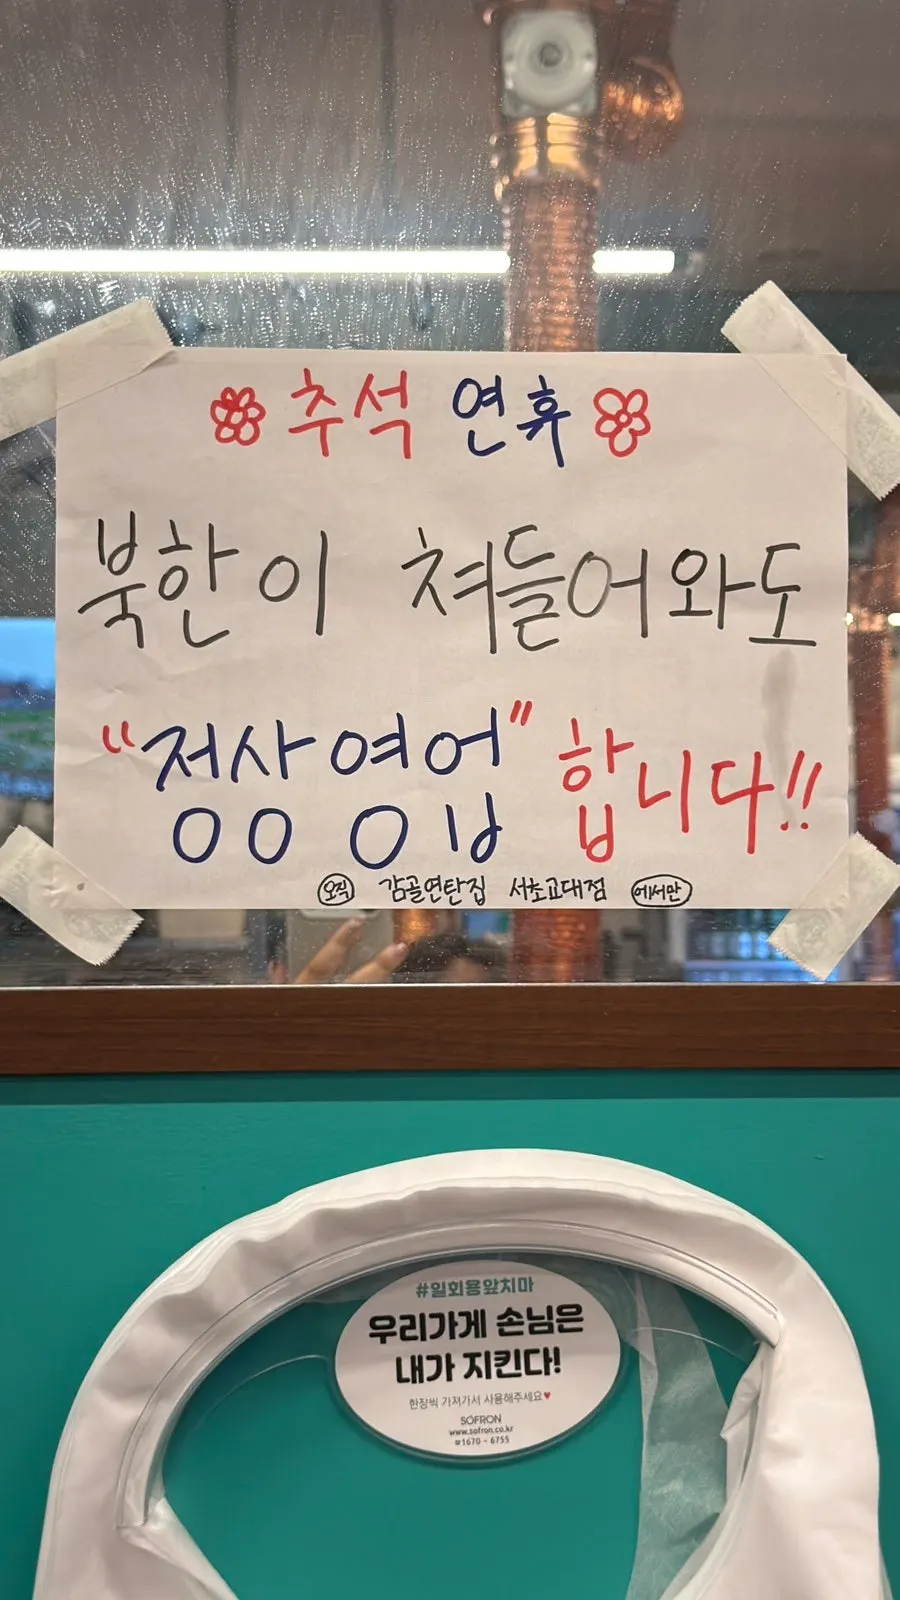 추석 연휴
북한이 쳐들어와도
"정상영업" 합니다!!
오직 감골연탄집 서초교대점 에서만
#일회용앞치마
우리가게 손님은
내가 지킨다!
한장씩 가져가서 사용해주세요♥
SOFRON
www.sofron.co.kr
☎1670 - 6755